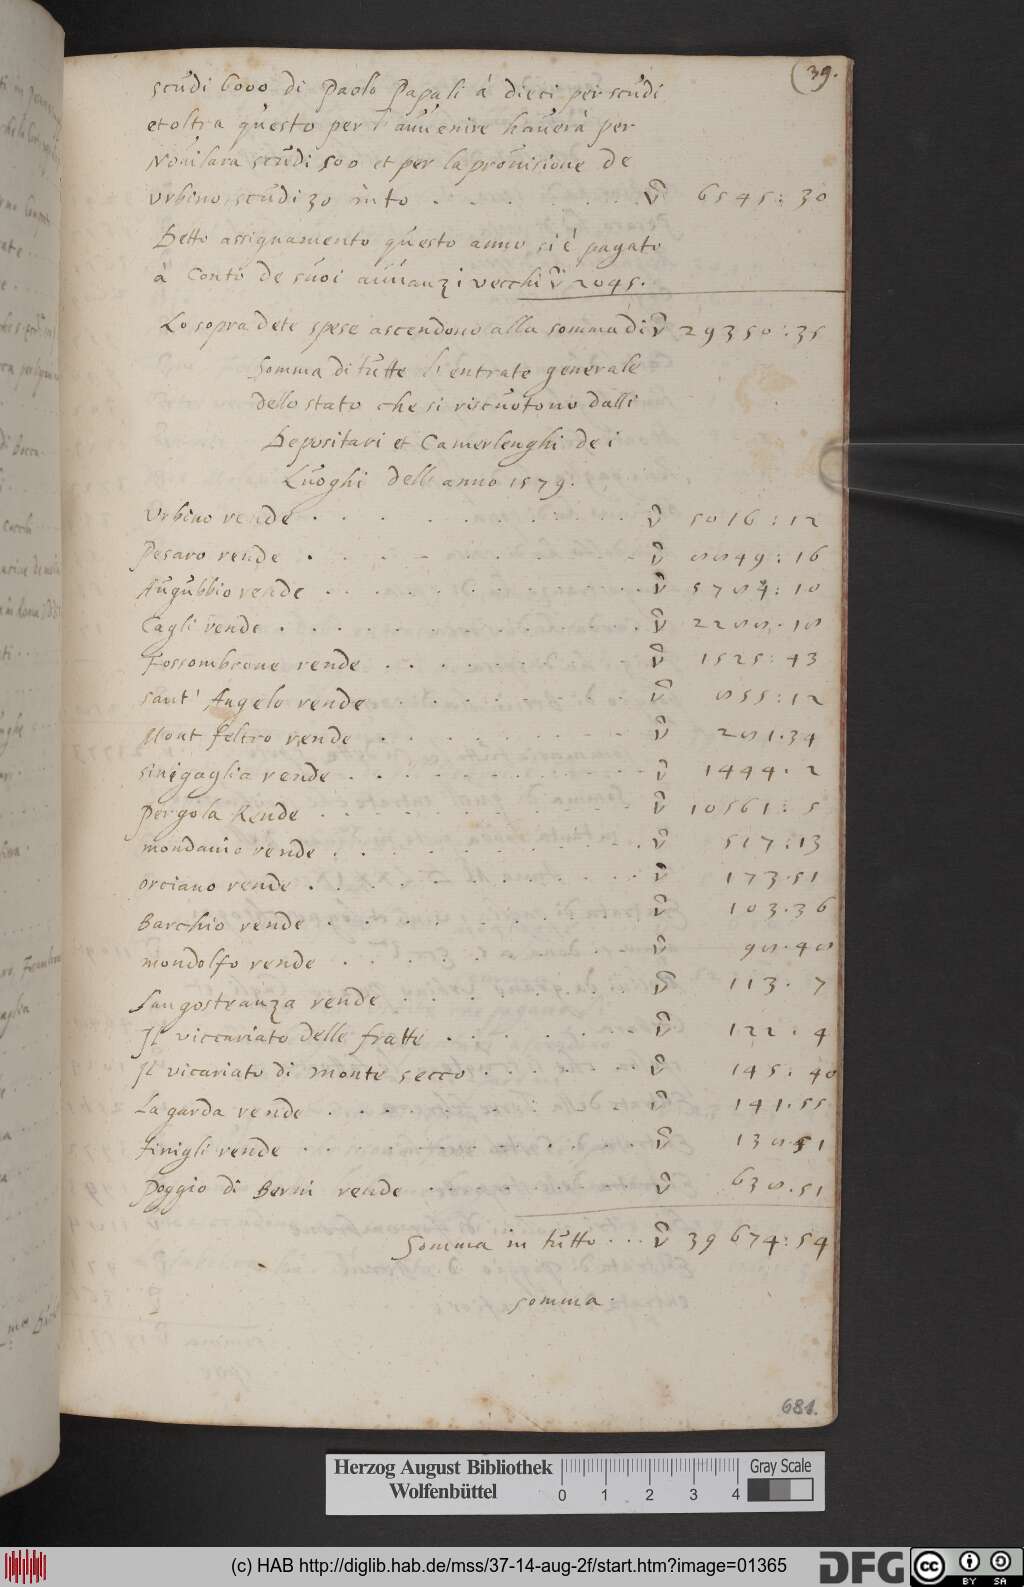 (39.
scudi 6000 di Paolo Papali à dieci per scudi
et oltra questo per l'auuenire hauerà per
Nouilara scudi 500 et per la prouisione de
Vrbino scudi 30 in to . . . . . . . ▽ 6545:30
Detto assignamento questo anno si è pagato
à Conto de suoi auuanzi vecchi ▽ 2045.
Lo sopra dete spese ascendono alla somma di ▽ 29350:35
Somma di tutte l'entrate generale
dello stato che si riscuotono dalli
Depositari et Camerlenghi de i
Luoghi dell anno 1579.
Vrbino rende . . . . . . . . . ▽ 5016:12
Pesaro rende . . . . . . . . . ▽ 8849:16
Augubbio rende . . . . . . . . . ▽ 5784:10
Cagli rende . . . . . . . . . ▽ 2288.18
Fossombrone rende . . . . . . . . ▽ 1525:43
Sant' Angelo rende . . . . . . . ▽ 855:12
Mont feltro rende . . . . . . . . ▽ 281.34
Sinigaglia rende . . . . . . . . ▽ 1444.2
Pergola Rende . . . . . . . . ▽ 10561:5
mondauio rende . . . . . . . . ▽ 517:13
orciano rende . . . . . . . . ▽ 173.51
Barchio rende . . . . . . . . ▽ 103.36
mondolfo rende . . . . . . . . ▽ 98.48
rende . . . . . . . ▽ 113.7
Il viccariato delle fratte . . . . . . ▽ 122.4
Il vicariato di monte secco . . . . . . ▽ 145.40
La garda rende . . . . . . . . ▽ 141.55
rende . . . . . . . . ▽ 138.51
Poggio di Berni rende . . . . . . . ▽ 638.51
Somma in tutto . . . ▽ 39674:54
somma.
681.
Herzog August Bibliothek
Wolfenbüttel
0 1 2 3 4
Gray Scale
(c) HAB http://diglib.hab.de/mss/37-14-aug-2f/start.htm?image=01365
DFG
cc BY SA